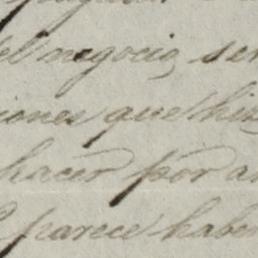 del negocio, ser
iones que hiz
hacer por a
parece haber